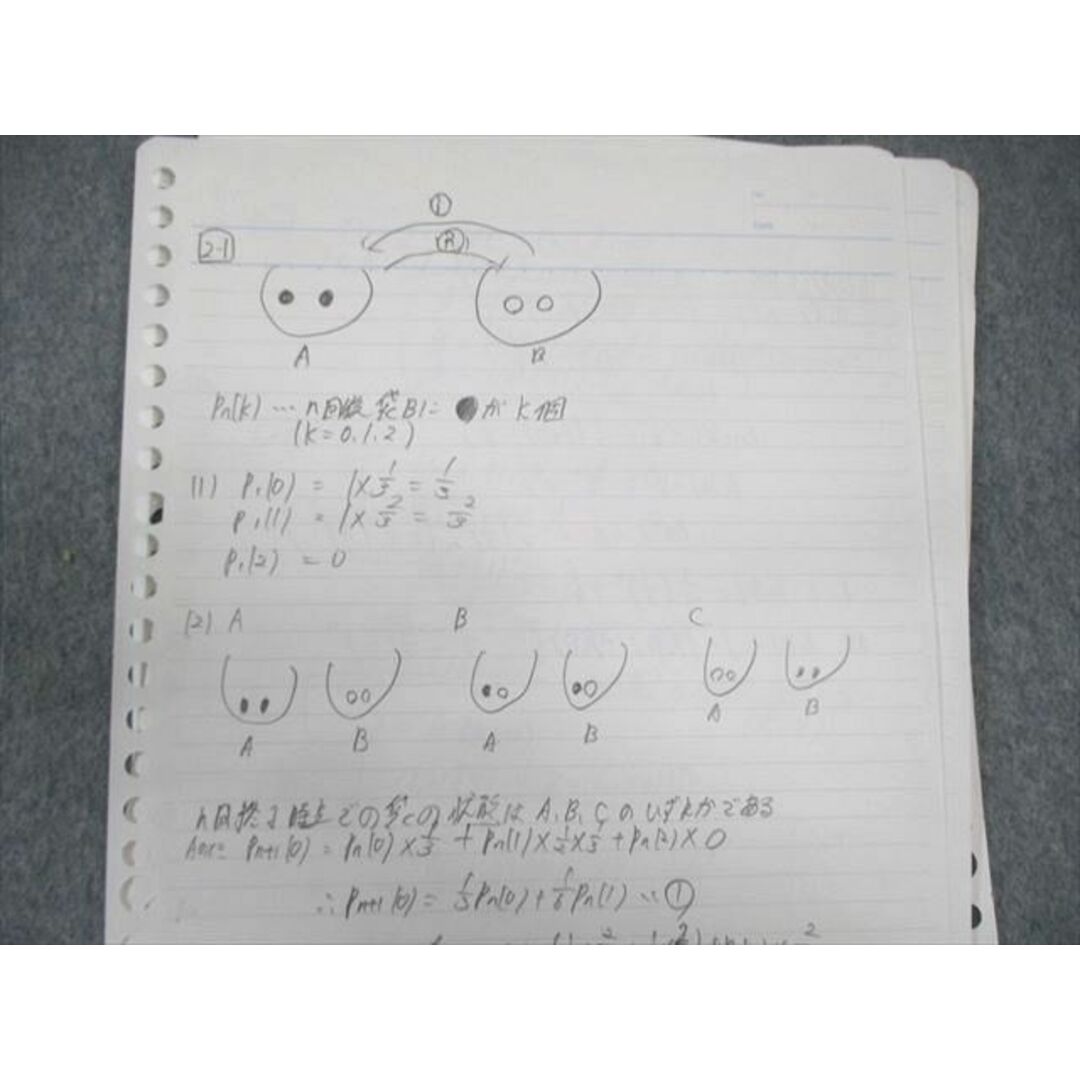 ①
2-1 ②
A B
Pn(k) … n回後 袋Bに ●がk個
(k=0,1,2)
(1) P₁(0) = 1×1/3 = 1/3
P₁(1) = 1×2/3 = 2/3
P₁(2) = 0
(2) A B C
A B A B A B
n回終了時点での袋の状態はA,B,Cのいずれかである
Pn+1(0) = Pn(0)×1/3 + Pn(1)×1/2×1/3 + Pn(2)×0
∴ Pn+1(0) = 1/3Pn(0) + 1/6Pn(1) … ①